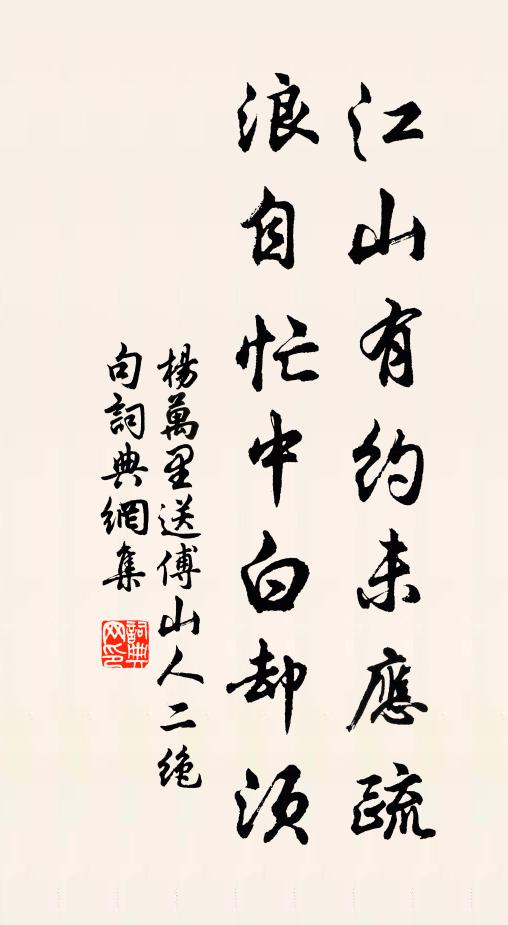 江山有約未應疏
浪自忙中白却須
楊萬里送傅山人二絶
句詞典網集
詞典網印